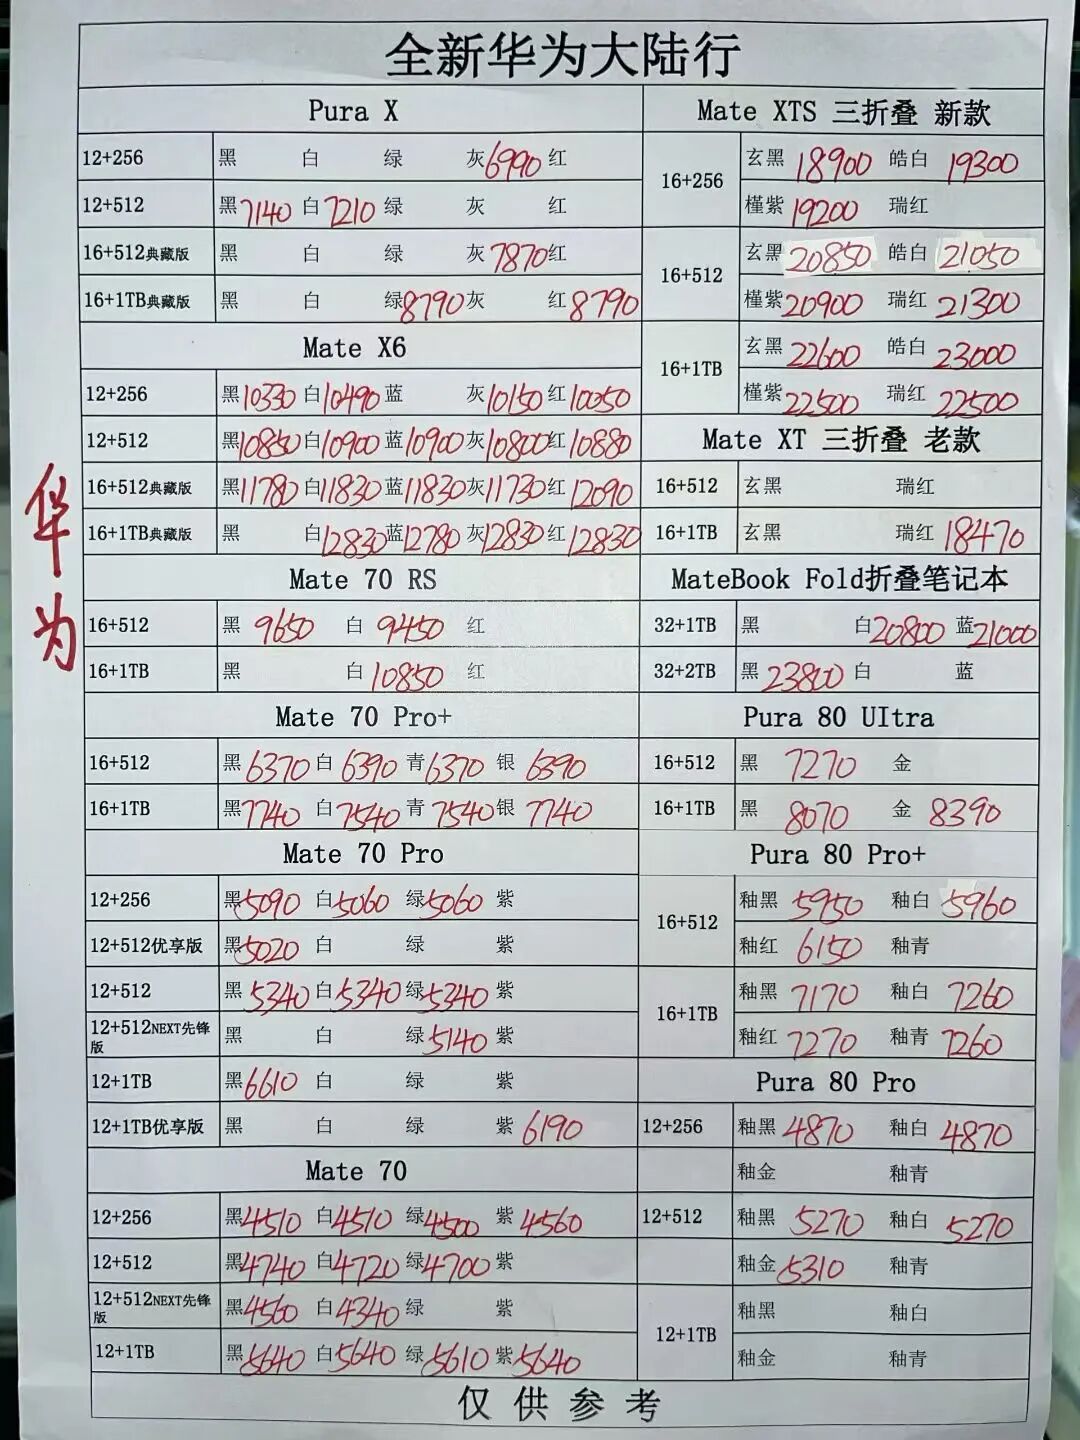 全新华为大陆行
华为
Pura X
12+256 黑 白 绿 灰6990 红
12+512 黑7140 白7210 绿 灰 红
16+512典藏版 黑 白 绿 灰7870 红
16+1TB典藏版 黑 白 绿8790 灰 红8790
Mate X6
12+256 黑10330 白10490 蓝 灰10150 红10050
12+512 黑10850 白10900 蓝10900 灰10800 红10880
16+512典藏版 黑11780 白11830 蓝11830 灰11730 红12090
16+1TB典藏版 黑 白12830 蓝12780 灰12830 红12830
Mate 70 RS
16+512 黑 9650 白 9450 红
16+1TB 黑 白 10850 红
Mate 70 Pro+
16+512 黑6370 白6390 青6370 银 6390
16+1TB 黑7740 白7540 青7540 银 7740
Mate 70 Pro
12+256 黑5090 白5060 绿5060 紫
12+512优享版 黑5020 白 绿 紫
12+512 黑5340 白5340 绿5340 紫
12+512NEXT先锋
版 黑 白 绿5140 紫
12+1TB 黑6610 白 绿 紫
12+1TB优享版 黑 白 绿 紫 6190
Mate 70
12+256 黑4510 白4510 绿4500 紫4560
12+512 黑4740 白4720 绿4700 紫
12+512NEXT先锋
版 黑4560 白4340 绿 紫
12+1TB 黑5640 白5640 绿5610 紫5640
Mate XTS 三折叠 新款
16+256 玄黑 18900 皓白 19300
槿紫 19200 瑞红
16+512 玄黑 20850 皓白 21050
槿紫20900 瑞红 21300
16+1TB 玄黑 22600 皓白 23000
槿紫22500 瑞红 22500
Mate XT 三折叠 老款
16+512 玄黑 瑞红
16+1TB 玄黑 瑞红 18470
MateBook Fold折叠笔记本
32+1TB 黑 白20800 蓝21000
32+2TB 黑23800 白 蓝
Pura 80 UItra
16+512 黑 7270 金
16+1TB 黑 8070 金 8390
Pura 80 Pro+
16+512 釉黑 5950 釉白 5960
釉红 6150 釉青
16+1TB 釉黑 7170 釉白 7260
釉红 7270 釉青 7260
Pura 80 Pro
12+256 釉黑4870 釉白 4870
釉金 釉青
12+512 釉黑 5270 釉白 5270
釉金5310 釉青
12+1TB 釉黑 釉白
釉金 釉青
仅供参考